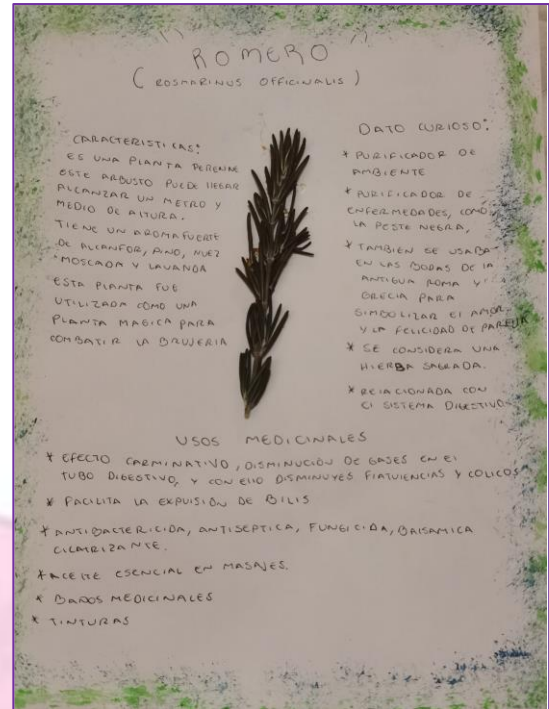 ROMERO
(ROSMARINUS OFFICINALIS)
CARACTERISTICAS:
ES UNA PLANTA PERENNE
ESTE ARBUSTO PUEDE LLEGAR
ALCANZAR UN METRO Y
MEDIO DE ALTURA.
TIENE UN AROMA FUERTE
DE ALCANFOR, PINO, NUEZ
MOSCADA Y LAVANDA
ESTA PLANTA FUE
UTILIZADA COMO UNA
PLANTA MAGICA PARA
COMBATIR LA BRUJERIA
DATO CURIOSO:
* PURIFICADOR DE
AMBIENTE
* PURIFICADOR DE
ENFERMEDADES, COMO
LA PESTE NEGRA,
* TAMBIÉN SE USABA
EN LAS BODAS DE LA
ANTIGUA ROMA Y
GRECIA PARA
SIMBOLIZAR EL AMOR
Y LA FELICIDAD DE PAREJA
* SE CONSIDERA UNA
HIERBA SAGRADA.
* RELACIONADA CON
EL SISTEMA DIGESTIVO.
USOS MEDICINALES
* EFECTO CARMINATIVO, DISMINUCIÓN DE GASES EN EL
TUBO DIGESTIVO, Y CON ELLO DISMINUYES FLATULENCIAS Y COLICOS
* FACILITA LA EXPULSIÓN DE BILIS
* ANTIBACTERICIDA, ANTISEPTICA, FUNGICIDA, BALSAMICA
CICATRIZANTE.
* ACEITE ESENCIAL EN MASAJES.
* BAÑOS MEDICINALES
* TINTURAS